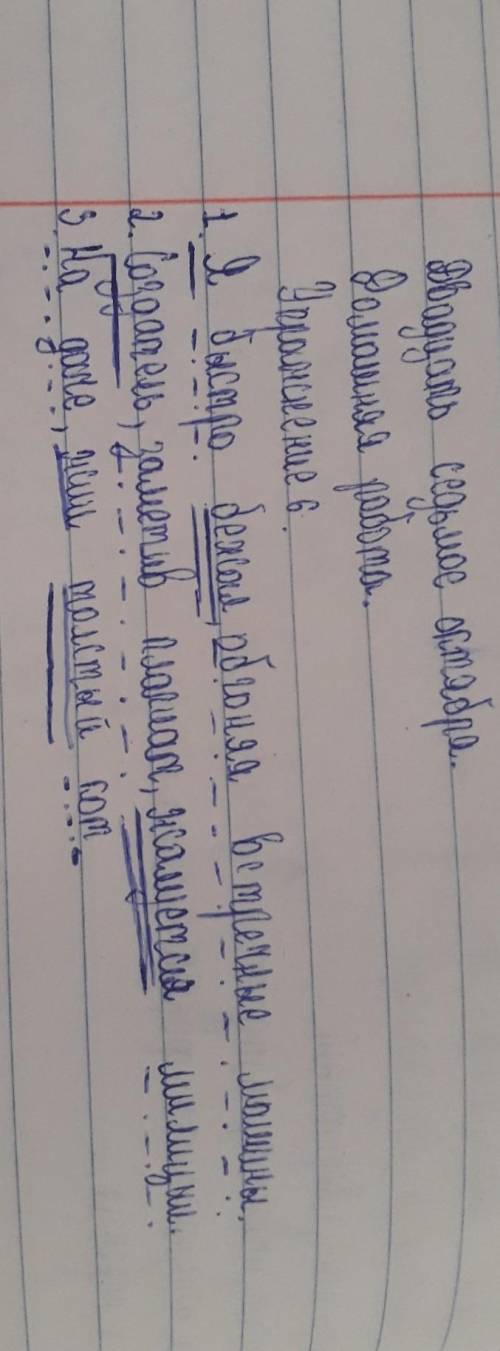 Двадцать седьмое октября.
Домашняя работа.
Упражнение 6.
1. Я быстро бежал, обгоняя встречные машины.
2. Создатель, заметив плакат, жалуется милиции.
3. На даче, жил толстый кот